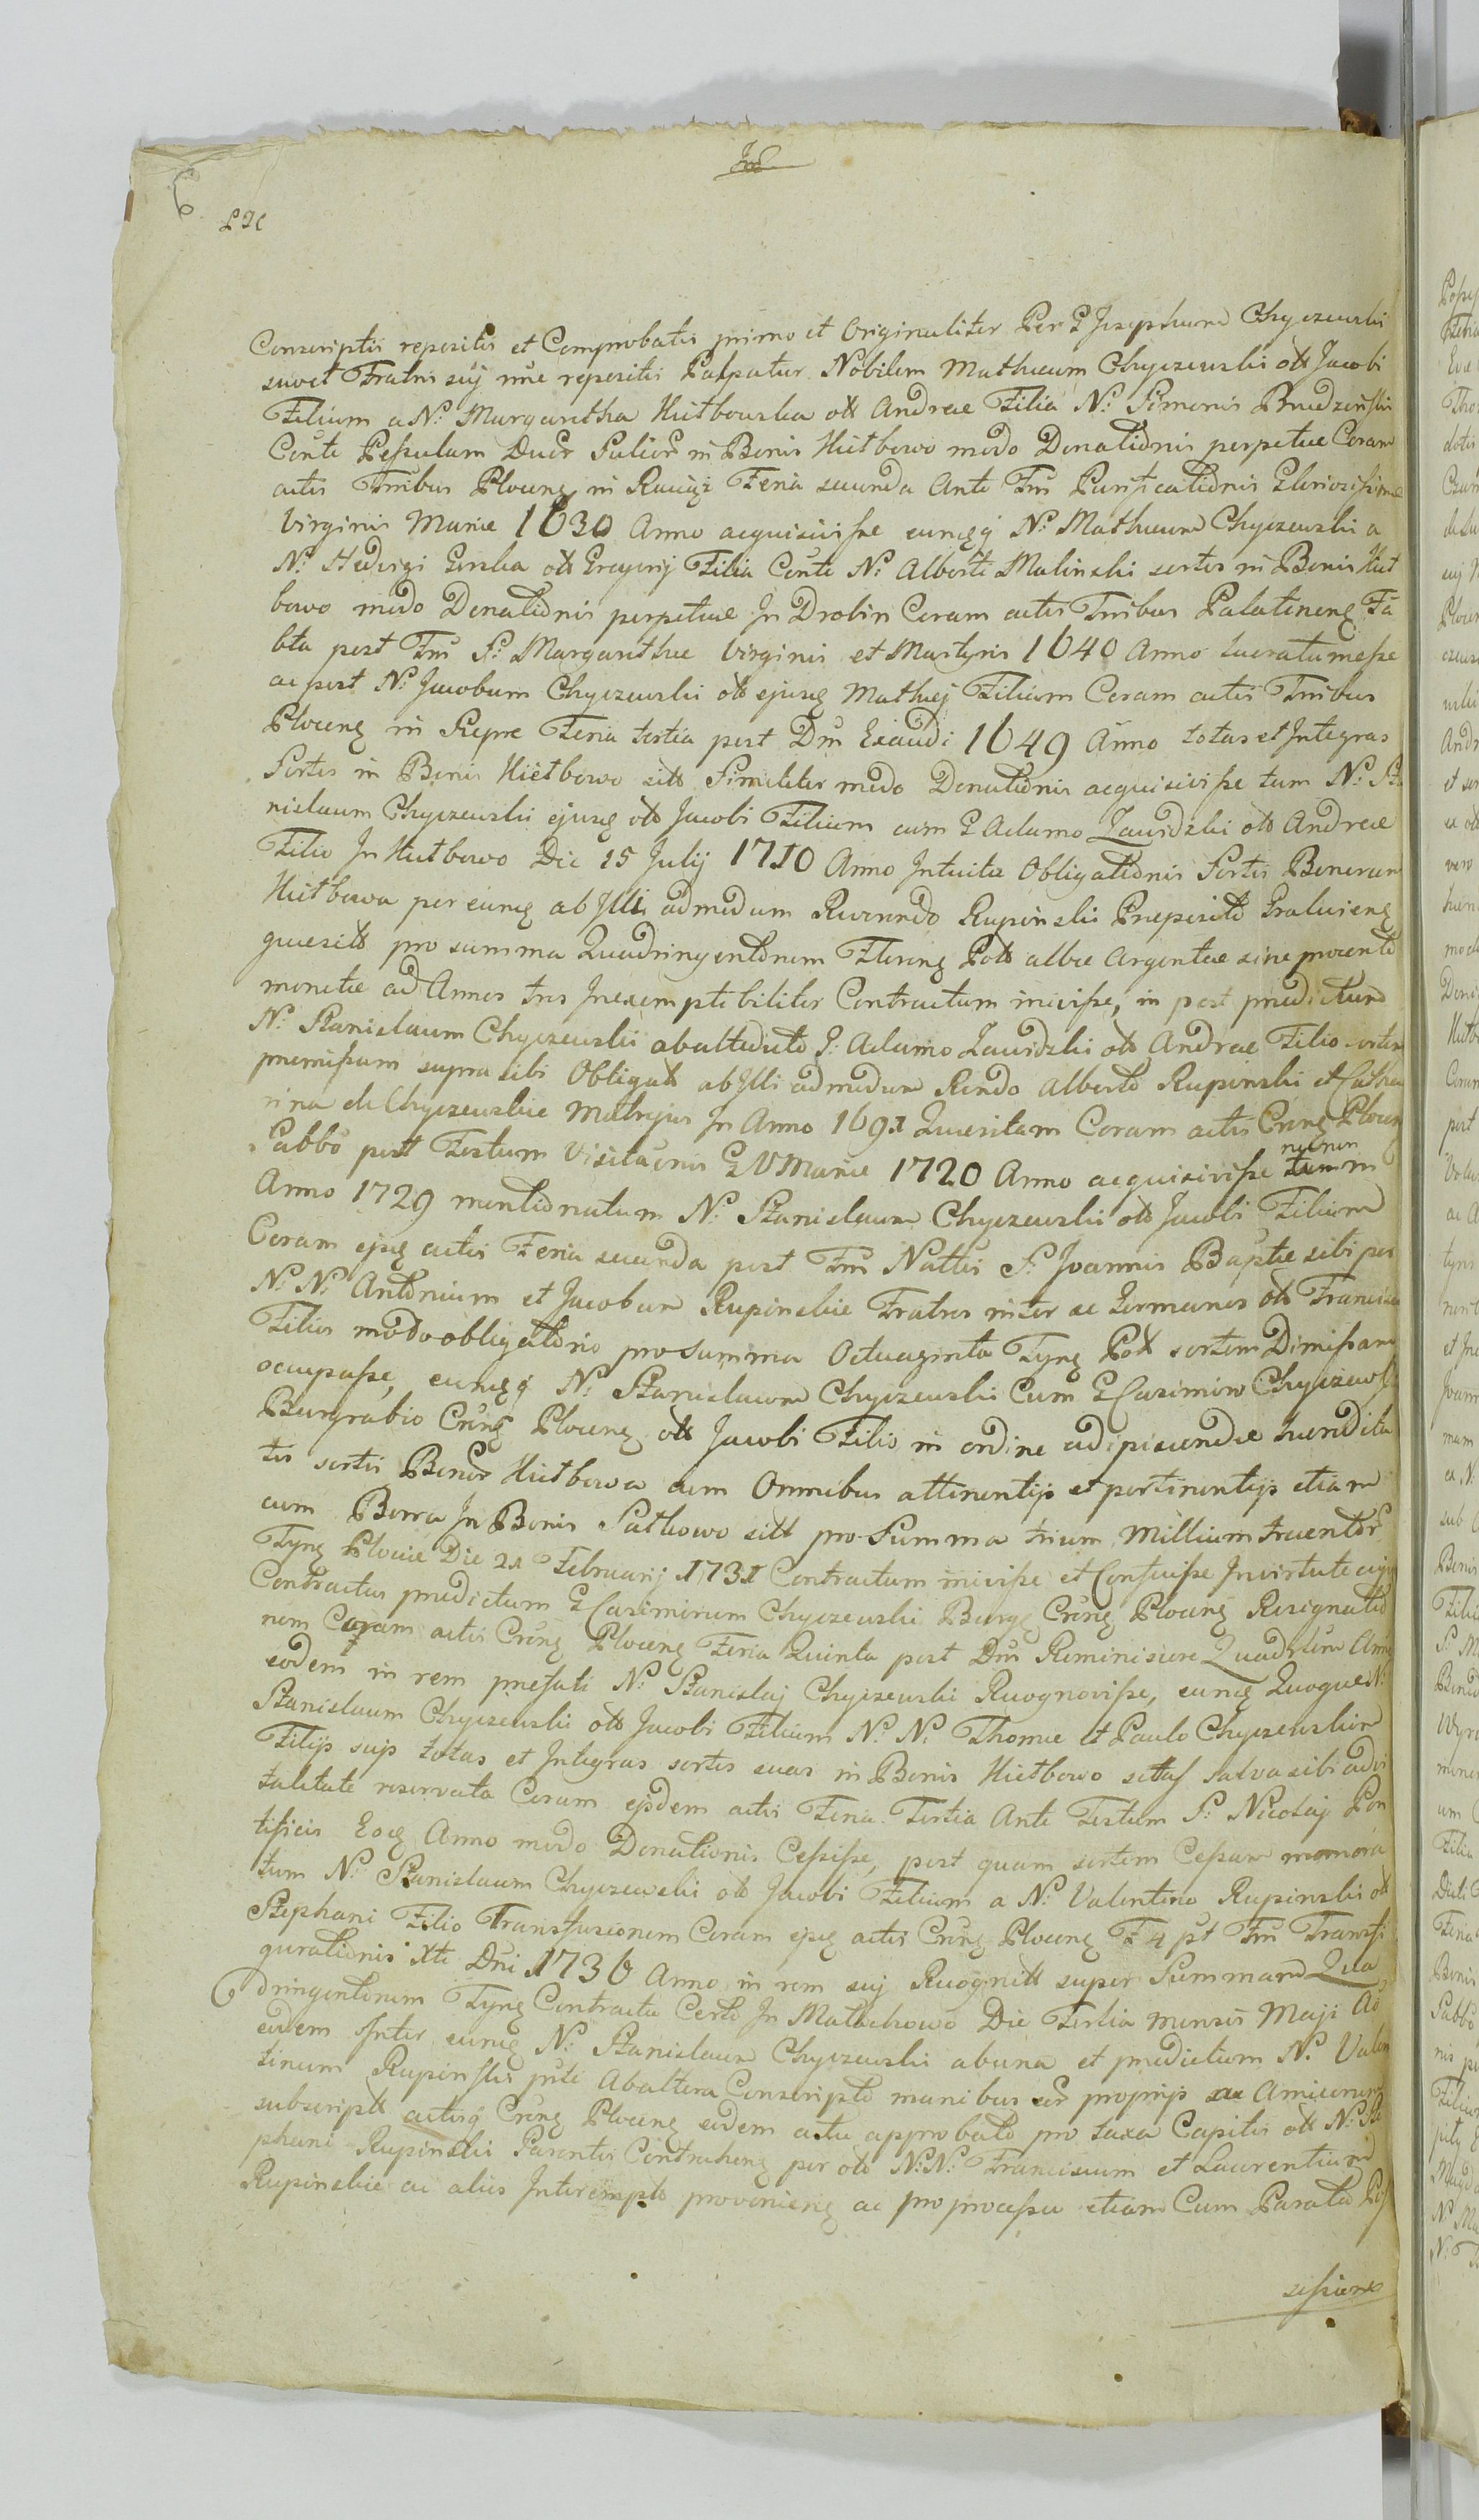 6.
Conscriptis repositis et Comprobatis primo et Originaliter Per G Josephum Chyczewski
suo et Fratris suj nne repositis Palpatur Nobilem Mathæum Chyczewski olt Jacobi
Filium a N: Margaretha Hutbowska olt Andreæ Filia N: Simonis Brudzinski
Conte Peßulam Duor Salior in Bonis Hutbowo modo Donationis perpetuæ Coram
actis Tribus Plocens in Raciąż Feria secunda Ante Fm Purificationis Glorioßißimæ
Virginis Mariæ 1630 Anno acquisiviße eumqq N: Mathæum Chyczewski a
N: Hedvigi Gorska olt Gregorij Filia Conte N: Alberti Malinski sortes in Bonis Hut
bowo modo Donationis perpetuæ In Drobin Coram actis Tribus Palatinens Fa
bta post Fm S: Margarethæ Virginis et Martyris 1640 Anno lucratumeße
ac post N: Jacobum Chyczewski olt ejusq Mathiej Filium Coram actis Tribus
Plocens in Sepre Feria tertia post Dm Exaudi 1649 Anno totas et Integras
Sortes in Bonis Hietbowo sitt Similiter modo Donationis acquisiviße tum N: St
nislaum Chyczewski ejusq olt Jacobi Filium cum G Adamo Zawidzki olt Andreæ
Filio In Hutbowo Die 15 Julij 1710 Anno Intuitu Obligationis Sortis Bonorum
Hietbowa per eumq ab Illi admodum Rverendo Rupinski Præposito Gralwiens
quesitt pro summa Quadringentorum Floreng Polt albæ Argenteæ sine procento
monetæ ad Annos tres Inexemptibiliter Contractum iniviße, in post prædictum
N: Stanislaum Chyczewski abaltedicto G: Adamo Zawidzki olt Andreæ Filio sortem
præmißam supra sibi Obligatt ab Illi admodum Rendo Alberto Rupinski et Cathea
rina de Chyczewskie Matre ejus In Anno 1691 Quesitam Coram actis Crens Plocen
Sabbo post Festum Visitaonis G V Mariæ 1720 Anno acquisiviße necnon in
Anno 1729 mentionatum N: Stanislaum Chyczewski olt Jacobi Filium
Coram ejsq actis Feria secunda post Fm Nattis S: Joannis Baptæ sibi per
N: N: Antonium et Jacobum Rupinskie Fratres inter se Germanos olt Francisci
Filios modo obligatorio pro Summa Octuaginta Tyng Polt sortem Dimißam
occupaße, eumqq N: Stanislaum Chyczewski Cum G Casimiro Chyczews
Burgrabio Crens Plocens olt Jacobi Filio in ordine adipiscendæ hæredita
tis sortis Bonor Hietbowa cum Omnibus attinentijs et pertinentijs etiam
cum Borra In Bonis Satkowo sitt pro Summa trium Millium trecentor
Tyng Plociæ Die 21 Februarij 1731 Contractum iniviße et Confeciße In virtute cujq
Contractus prædictum G Casimirum Chyczewski Burgg Crens Plocens Resignatio
nem Coram actis Crens Plocens Feria Quinta post Dm Reminiscere Quadrlem Anno
eodem in rem præfati N: Stanislaj Chyczewski Recognoviße, eumq Quoque N:
Stanislaum Chyczewski olt Jacobi Filium N: N: Thomæ et Paulo Chyczewskim
Filijs sujs totas et Integras sortes suas in Bonis Hietbowo sittas salva sibi advi
talitate reservata Coram ejsdem actis Feria Tertia Ante Festum S: Nicolaj Pon
tificis Eoq Anno modo Donationis Ceßiße, post quam sortem Ceßam memora
tum N: Stanislaum Chyczewski olt Jacobi Filium a N: Valentino Rupinski olt
Stephani Filio Transfusionem Coram ejsq actis Crens Plocens F 4 pt Fm Transfi
gurationis Xti Dni 1736 Anno in rem suj Recognitt super Summam Qua
dringentorum Tyng Contractu Certo In Malachowo Die Tertia mensis Maji Ao
eodem Inter eumq N: Stanislaum Chyczewski abuna et prædictum N: Valen
tinum Rupinski prti Abaltera Conscripto manibus eor proprijs ac Amicorum
subscriptt actisq Crens Plocens eodem actu approbato pro taxa Capitis olt N: Ste
phani Rupinski Parentis Contrahens per olt N: N: Franciscum et Laurentium
Rupinskie ac alios Interempto proveniens ac pro proceßu etiam Cum Parata Poß
seßione